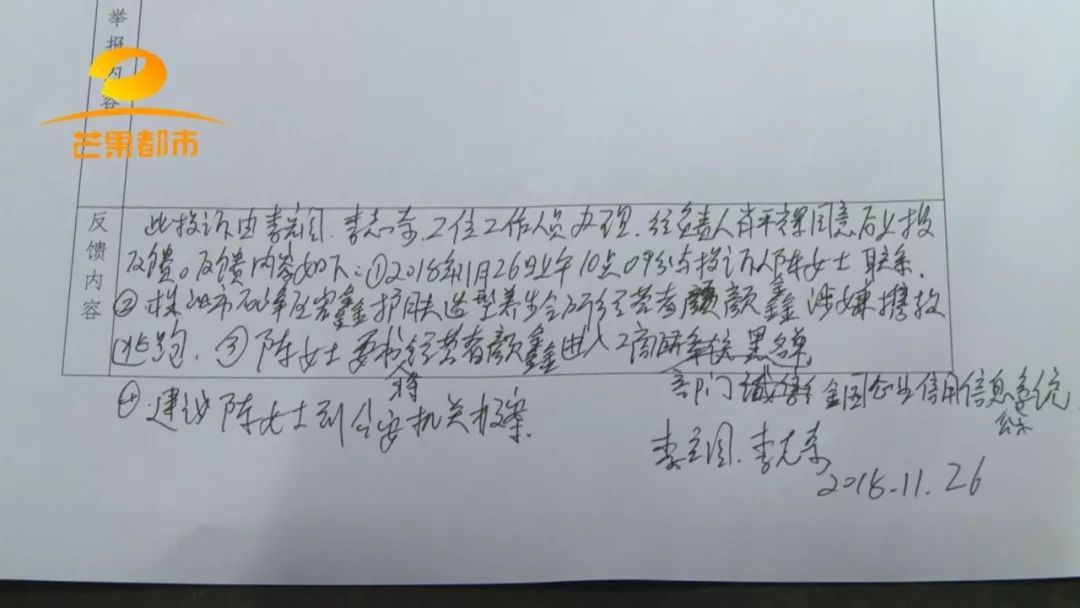 举报内容
芒果都市
反馈内容
此投诉由李 、李志 工作人员办理,经负责人肖平 同意后 投
反馈。反馈内容如下:①2018年11月26日上午10点09分与投诉人陈女士联系.
②株洲市 区容鑫护肤造型养生会所经营者颜鑫涉嫌携款
逃跑.③陈女士要求将经营者颜鑫进入工商 黑名单
部门 全国企业信用信息公示系统
④建议陈女士到公安机关报案.
李 、李志
2018.11.26